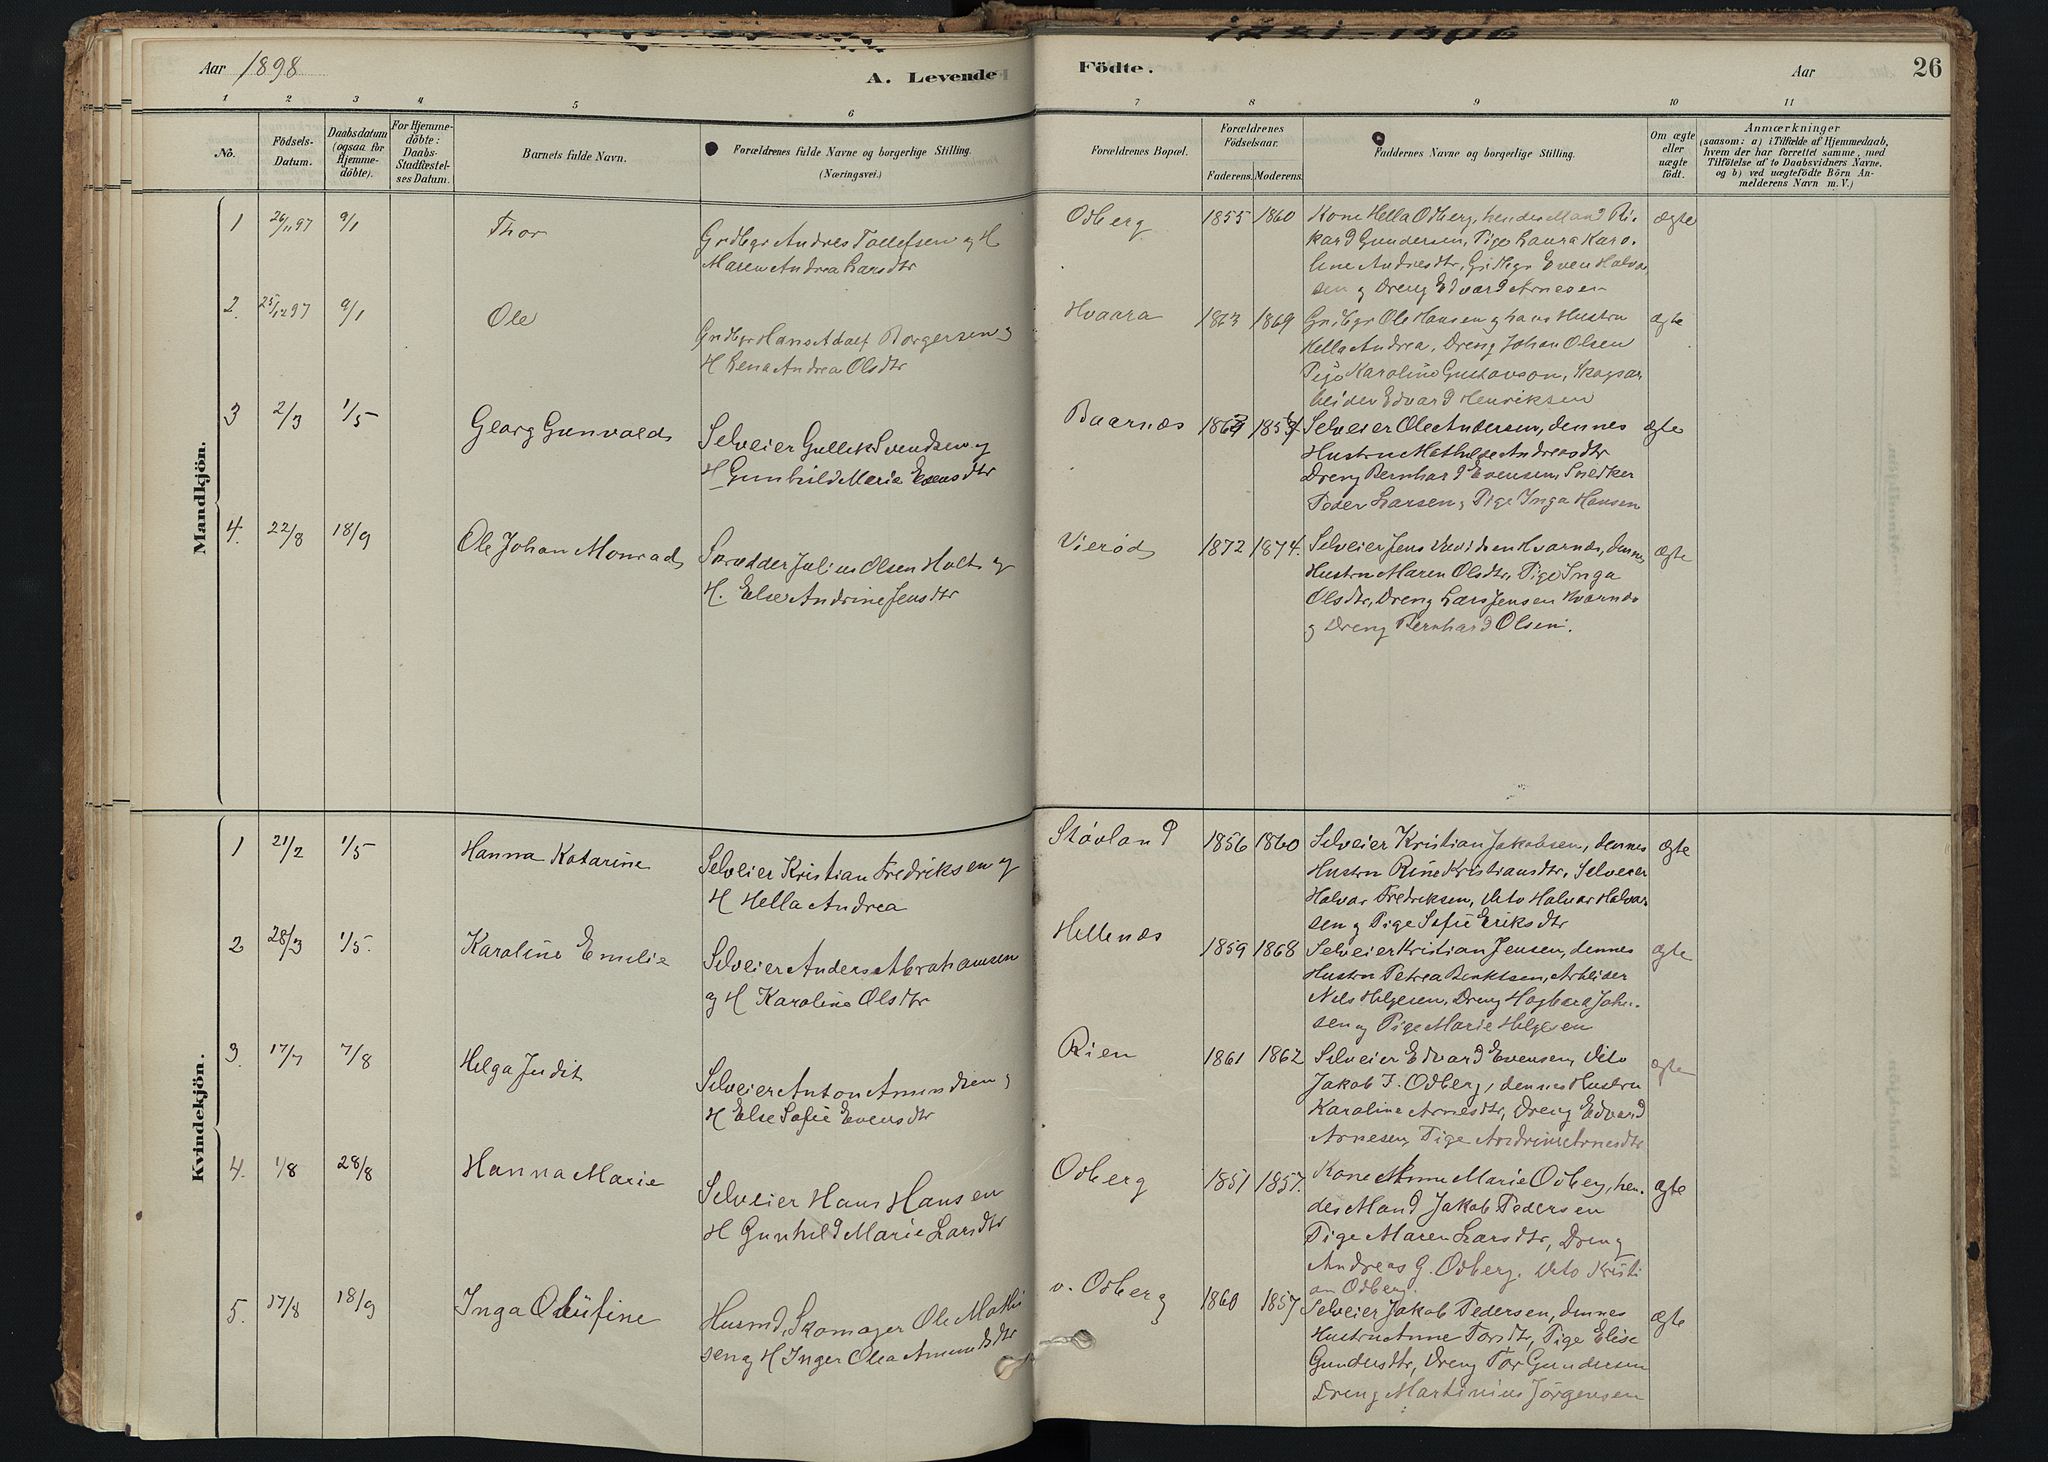 1881-1906
Aar 1898
A. Levende
Födte.
Aar
26
1 2 3 4 5 6 7 8 9 10 11
No.
Födsels-
Datum.
Daabsdatum
(ogsaa for
Hjemme-
döbte).
For Hjemme-
döbte:
Daabs-
Stadfæstel-
ses Datum.
Barnets fulde Navn.
Forældrenes fulde Navne og borgerlige Stilling.
(Næringsvei.)
Forældrenes Bopæl.
Forældrenes
Födselsaar.
Faderens. Moderens.
Faddernes Navne og borgerlige Stilling.
Om ægte
eller
uægte
födt.
Anmærkninger
(saasom: a) i Tilfælde af Hjemmedaab,
hvem der har forrettet samme, med
Tilföielse af to Daabsvidners Navne,
og b) ved uægtefödte Börn An-
melderens Navn m. V.)
Mandkjön.
1 26/11 97 9/1
Thor
Grdbgr Andres Tollefsen og H
Maren Andrea Larsdtr
Odberg
1855 1860
Kone Hella Odberg, hendes Mand Ri-
kard Gundersen, Pige Laura Karo-
line Andresdtr, Grdbgr Even Halvor
sen og Dreng Edvard Arnesen
ægte
2. 25/12 97 9/1
Ole
Grdbgr Hans Adolf Borgersen og
H Lena Andrea Olsdtr
Hvaara
1863 1869
Grdbgr Ole Hansen og hans Hustru
Hella Andrea, Dreng Johan Olsen
Pige Karoline Gustavson, Skogsar
beider Edvard Henriksen
ægte
3 2/3 1/5
Georg Gunvald
Selveier Gullik Svendsen og
H Gunhild Marie Evensdtr
Baarnæs
Selveier Ole Andersen, dennes
Hustru Mathilde Andreasdtr
Dreng Bernhard Evensen, Snedker
Peder Larsen og Pige Inga Hansen
ægte
4. 22/8 18/9
Ole Johan Monrad
Skrædder Julius Olsen Holt og
H. Else Andrine Jensdtr
Vierød
1872 1874.
Selveier Jens Hvarnæs, dennes
Hustru Maren Olsdtr, Pige Inga
Olsdtr, Dreng Lars Jensen Hvarnæs
og Dreng Bernhard Olsen.
ægte
Kvindekjön.
1 21/2 1/5
Hanna Katarine
Selveier Kristian Fredriksen og
H Hella Andrea
Støvland
1856 1860
Selveier Kristian Jakobsen, dennes
Hustru Rine Kristiansdtr, Selveier
Halvor Fredriksen, dito Halvor Halvor
sen og Pige Sofie Eriksdtr
ægte
2 28/3 1/5.
Karoline Emilie
Selveier Anders Abrahamsen
og H Karoline Olsdtr
Hellenæs
1859 1868
Selveier Kristian Jensen, dennes
Hustru Petrea Arbeider
Nils Helgesen, Dreng Hagbard Joha-
sen og Pige Marie Helgesen
ægte
3. 17/7 7/8
Helga Judit
Selveier Anton Amundsen og
H Else Sofie Evensdtr
Rien
1861 1862
Selveier Edvard Evensen, dito
Jakob J. Odberg, dennes Hustru
Karoline Arnesdtr, Dreng Edvard
Arnesen, Pige Andrine Arnesdtr
ægte
4. 1/8 28/8
Hanna Marie
Selveier Hans Hansen
H Gunhild Marie Larsdtr
Odberg
1851 1857.
Kone Anne Marie Odberg, hen-
des Mand Jakob Pedersen
Pige Maren Larsdtr, Dreng
Andreas G. Odberg. dito Kristi
an Odberg.
ægte
5. 17/8 18/9
Inga Olufine
Husmd, Skomager Ole Mathi
sen og H Inger Olea Amundsdtr
v. Odberg
1860 1857
Selveier Jakob Pedersen, dennes
Hustru Anne Torsdtr, Pige Elise
Gundersdtr, Dreng Tor Gundersen
Dreng Martinius Jørgensen
ægte